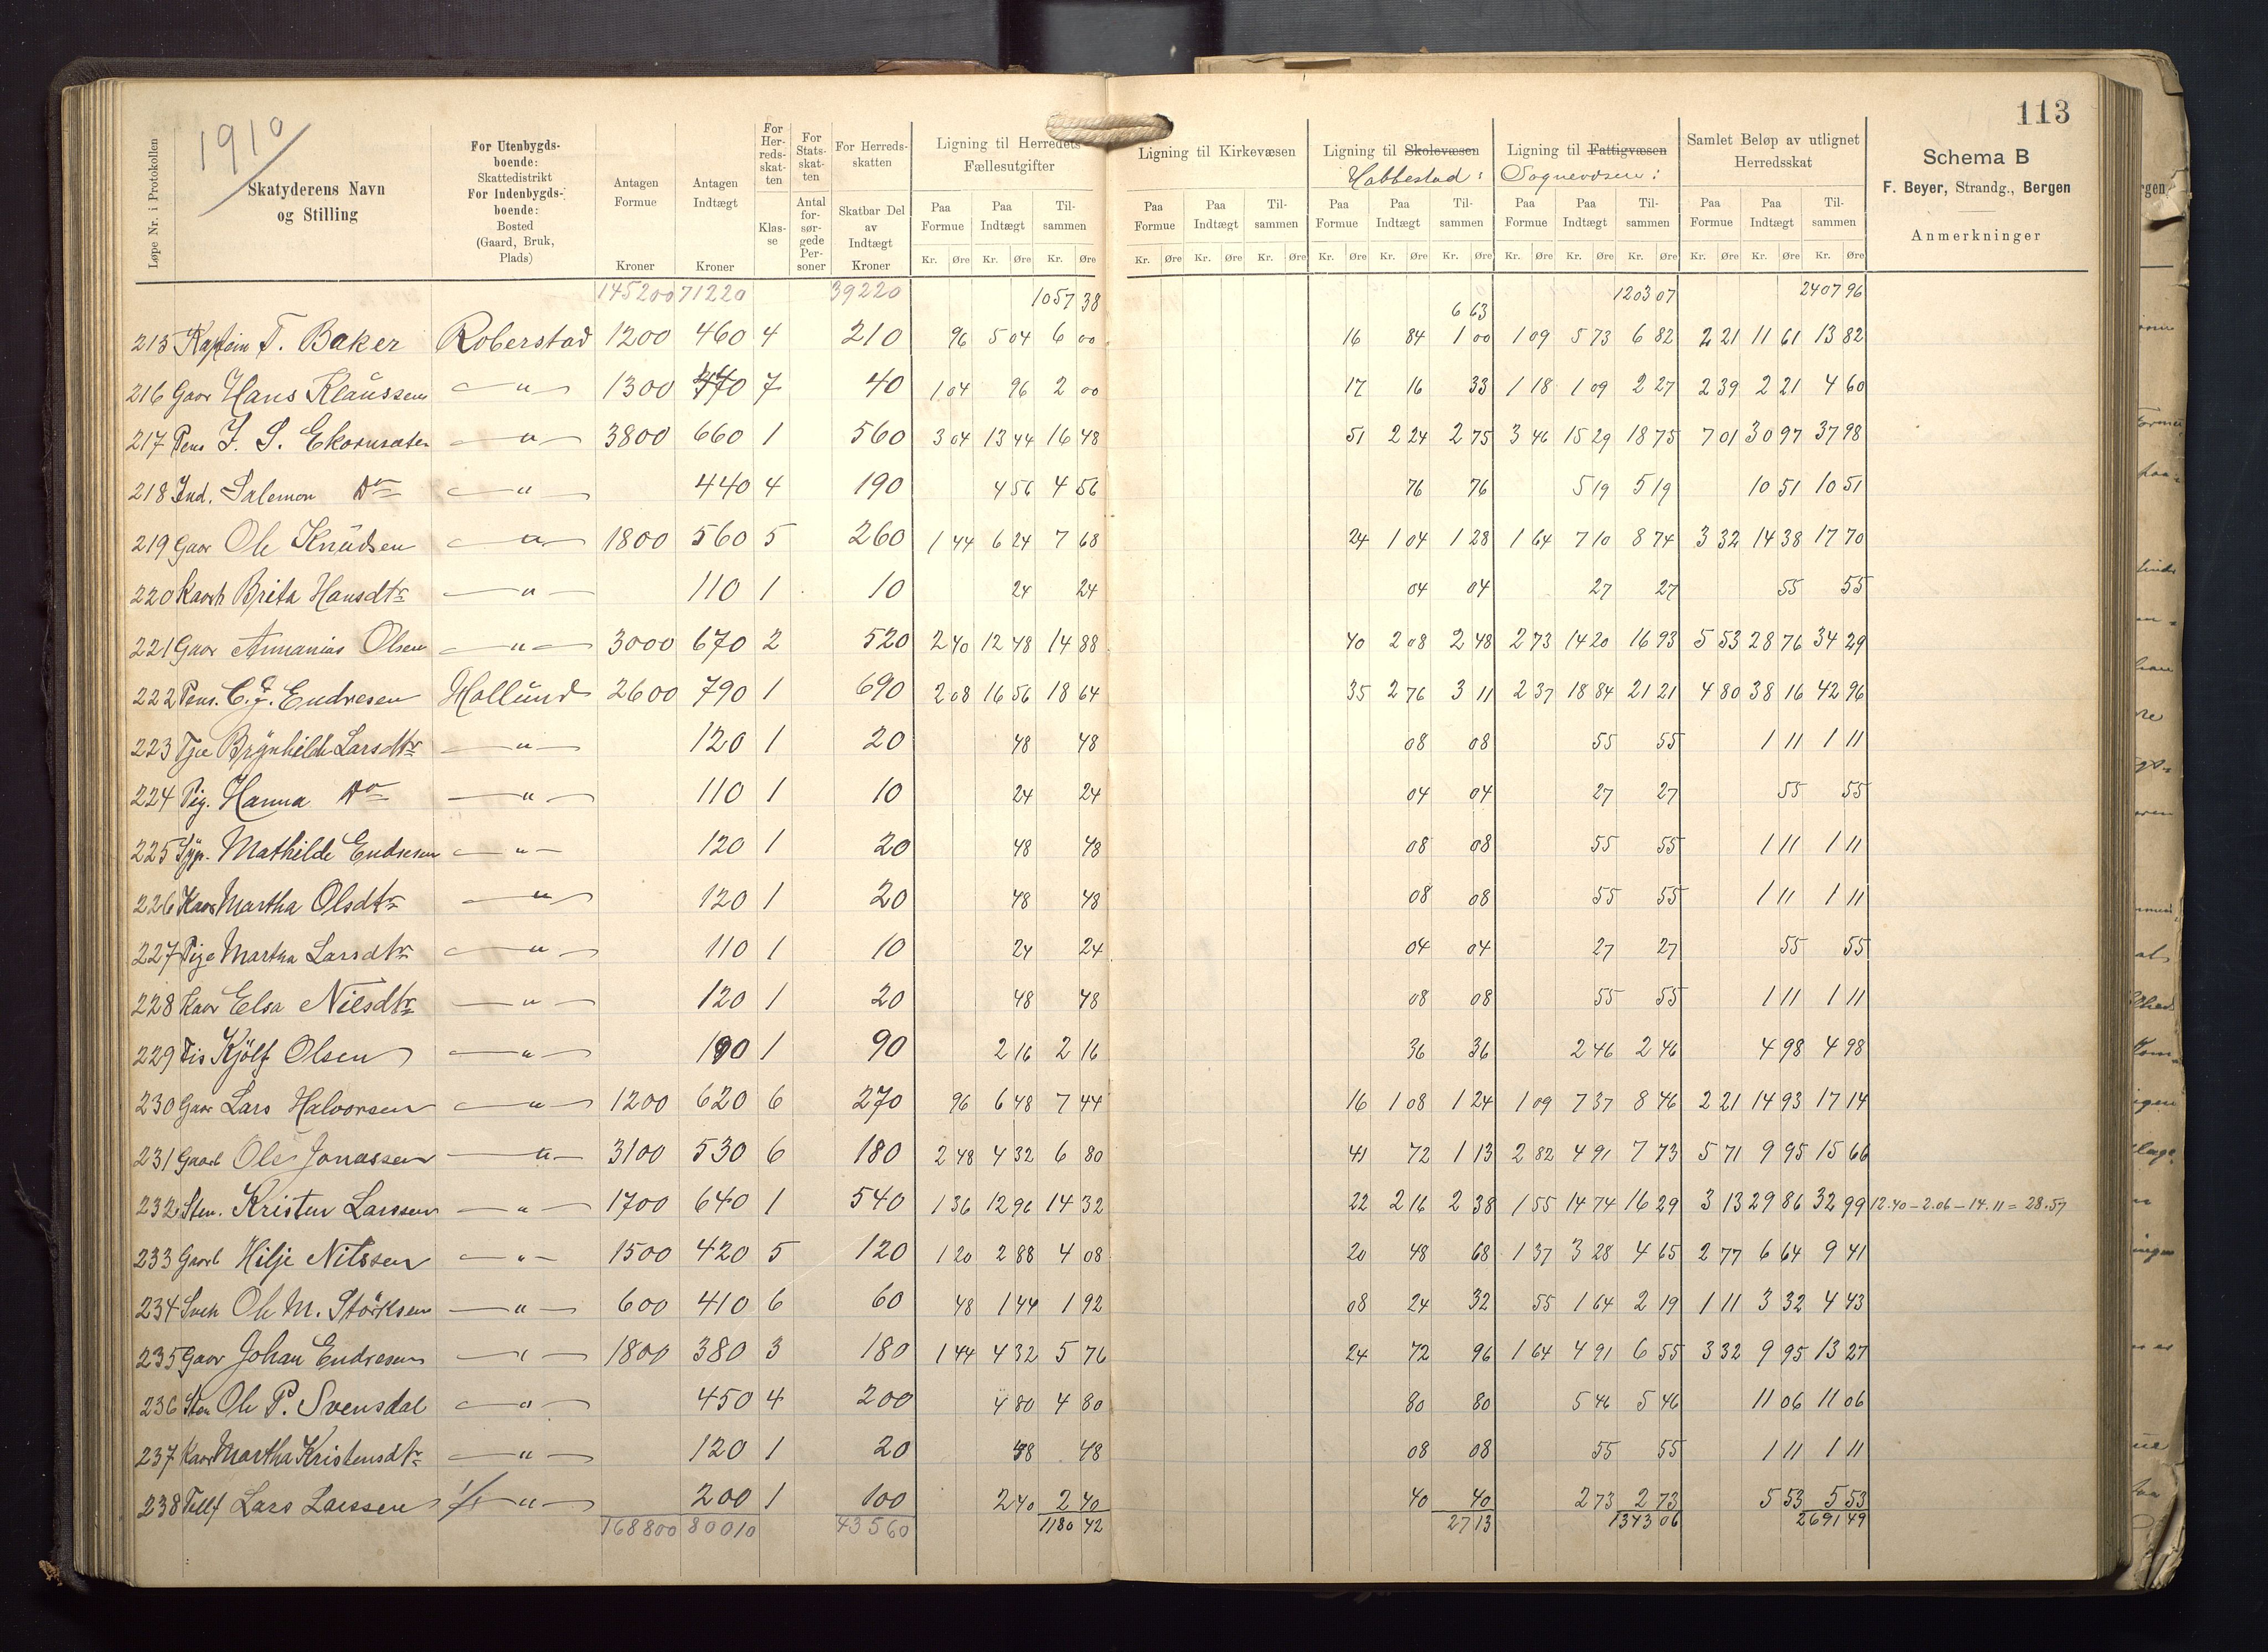 113
1910
Løpe Nr. i Protokollen
Skatyderens Navn og Stilling
For Utenbygds-boende: Skattedistrikt
For Indenbygds-boende: Bosted (Gaard, Bruk, Plads)
Antagen Formue Kroner
Antagen Indtægt Kroner
For Herreds-skatten Klasse
For Stats-skatten Antal forsørgede Personer
For Herreds-skatten Skatbar Del av Indtægt Kroner
Ligning til Herredets Fællesutgifter
Ligning til Kirkevæsen
Ligning til Skolevæsen Habbestad:
Ligning til Fattigvæsen Sognevæsen:
Samlet Beløp av utlignet Herredsskat
Paa Formue Paa Indtægt Til-sammen Kr. Øre
Schema B
F. Beyer, Strandg., Bergen
Anmerkninger
145200 71220 39220 1057 38 6 63 1203 07 2407 96
213 Kaptein T. Baker Roberstad 1200 460 4 210 96 5 04 6 00 16 84 1 00 1 09 5 73 6 82 2 21 11 61 13 82
216 Gaar Hans Klaussen " 1300 7 40 1 04 96 2 00 17 16 33 1 18 1 09 2 27 2 39 2 21 4 60
217 Pens J. S. Ekornsæter " 3800 660 1 560 3 04 13 44 16 48 51 2 24 2 75 3 46 15 29 18 75 7 01 30 97 37 98
218 Ind. Salemon Do " 440 4 190 4 56 4 56 76 76 5 19 5 19 10 51 10 51
219 Gaar Ole Knudsen " 1800 560 5 260 1 44 6 24 7 68 24 1 04 1 28 1 64 7 10 8 74 3 32 14 38 17 70
220 Kaarb Brita Hansdtr " 110 1 10 24 24 04 04 27 27 55 55
221 Gaar Annanias Olsen " 3000 670 2 520 2 40 12 48 14 88 40 2 08 2 48 2 73 14 20 16 93 5 53 28 76 34 29
222 Pens. C. J. Endresen Hollund 2600 790 1 690 2 08 16 56 18 64 35 2 76 3 11 2 37 18 84 21 21 4 80 38 16 42 96
223 Tje Brynhilde Larsdtr " 120 1 20 48 48 08 08 55 55 1 11 1 11
224 Pig. Hanna Do " 110 1 10 24 24 04 04 27 27 55 55
225 Syp. Mathilde Endresen " 120 1 20 48 48 08 08 55 55 1 11 1 11
226 Kaar Martha Olsdtr " 120 1 20 48 48 08 08 55 55 1 11 1 11
227 Pige Martha Larsdtr " 110 1 10 24 24 04 04 27 27 55 55
228 Kaar Elsa Nilsdtr " 120 1 20 48 48 08 08 55 55 1 11 1 11
229 Fis Kjölf Olsen " 190 1 90 2 16 2 16 36 36 2 46 2 46 4 98 4 98
230 Gaar Lars Halvorsen " 1200 620 6 270 96 6 48 7 44 16 1 08 1 24 1 09 7 37 8 46 2 21 14 93 17 14
231 Gaarb Ole Jonassen " 3100 530 6 180 2 48 4 32 6 80 41 72 1 13 2 82 4 91 7 73 5 71 9 95 15 66
232 Sten. Kristen Larssen " 1700 640 1 540 1 36 12 96 14 32 22 2 16 2 38 1 55 14 74 16 29 3 13 29 86 32 99 12.40 – 2.06 – 14.11 = 28.57
233 Gaarb Hilje Nilssen " 1500 420 5 120 1 20 2 88 4 08 20 48 68 1 37 3 28 4 65 2 77 6 64 9 41
234 Ole M. Störksen " 600 410 6 60 48 1 44 1 92 08 24 32 55 1 64 2 19 1 11 3 32 4 43
235 Gaar Johan Endresen " 1800 380 3 180 1 44 4 32 5 76 24 72 96 1 64 4 91 6 55 3 32 9 95 13 27
236 Sten Ole P. Svensdal " 450 4 200 4 80 4 80 80 80 5 46 5 46 11 06 11 06
237 Kaar Martha Kristensdtr " 120 1 20 48 48 08 08 55 55 1 11 1 11
238 Tellf Lars Larssen 1/1 " 200 1 100 2 40 2 40 40 40 2 73 2 73 5 53 5 53
168800 80010 43560 1180 42 27 13 1343 06 2691 49